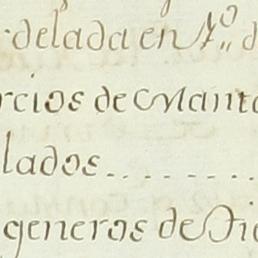 delada en N.º d
rcios de Manto
lados........
generos de Tie